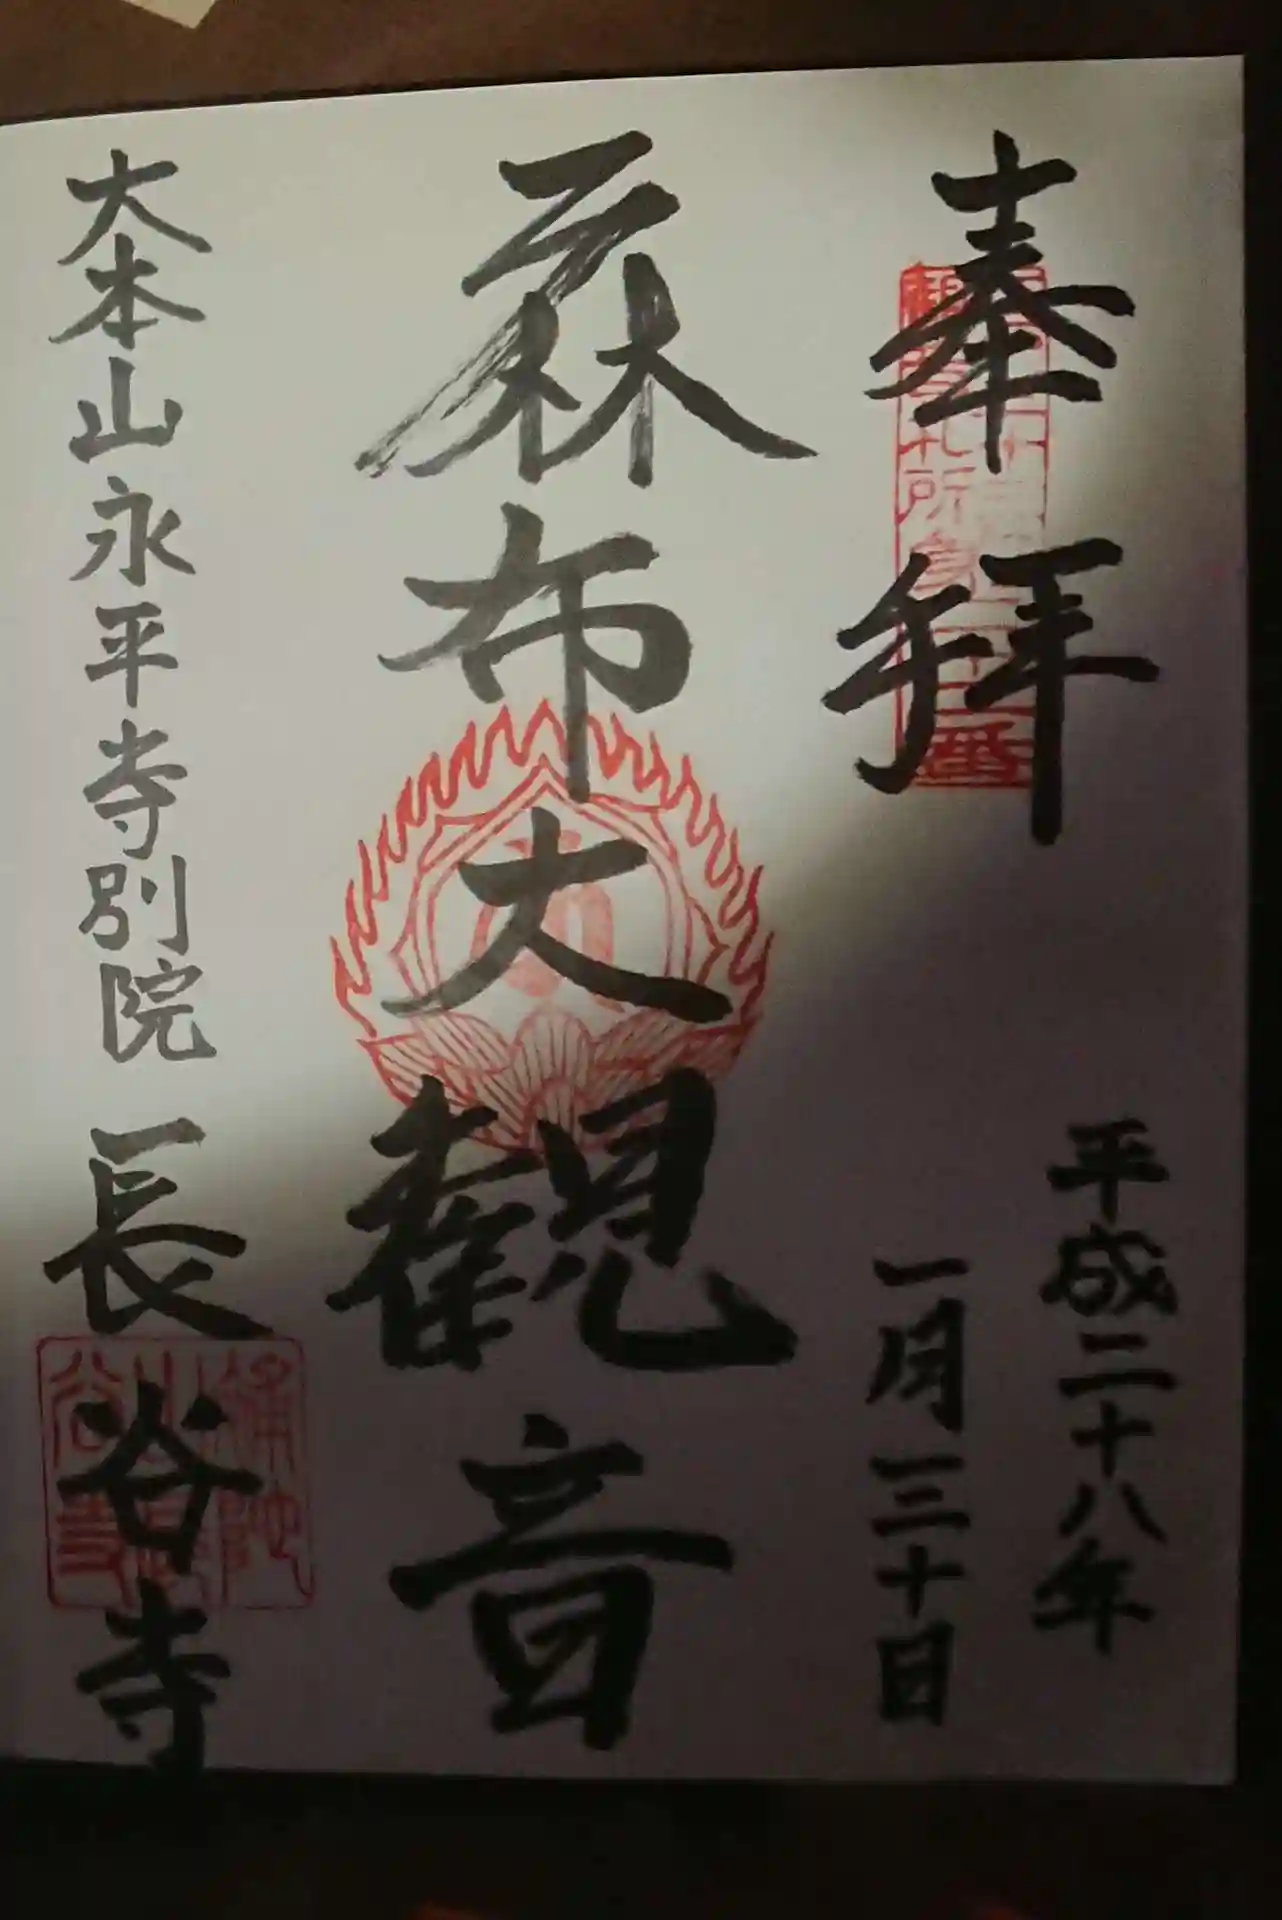 奉拝
平成二十八年
一月三十日
麻布大観音
大本山永平寺別院 長谷寺